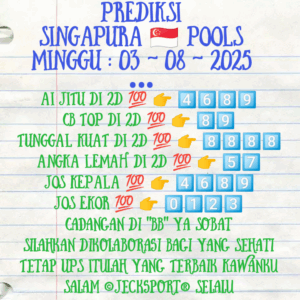 PREDIKSI
SINGAPURA 🇸🇬 POOLS
MINGGU : 03 ~ 08 ~ 2025
•••
AI JITU DI 2D 💯 👉 4️⃣6️⃣8️⃣9️⃣
CB TOP DI 2D 💯 👉 8️⃣9️⃣
TUNGGAL KUAT DI 2D 💯 👉 8️⃣8️⃣8️⃣8️⃣
ANGKA LEMAH DI 2D 💯 👉 5️⃣7️⃣
JOS KEPALA 💯 👉 4️⃣6️⃣8️⃣9️⃣
JOS EKOR 💯 👉 0️⃣1️⃣2️⃣3️⃣
CADANGAN DI "BB" YA SOBAT
SILAHKAN DIKOLABORASI BAGI YANG SEHATI
TETAP UPS ITULAH YANG TERBAIK KAWANKU
SALAM ©JECKSPORT® SELALU